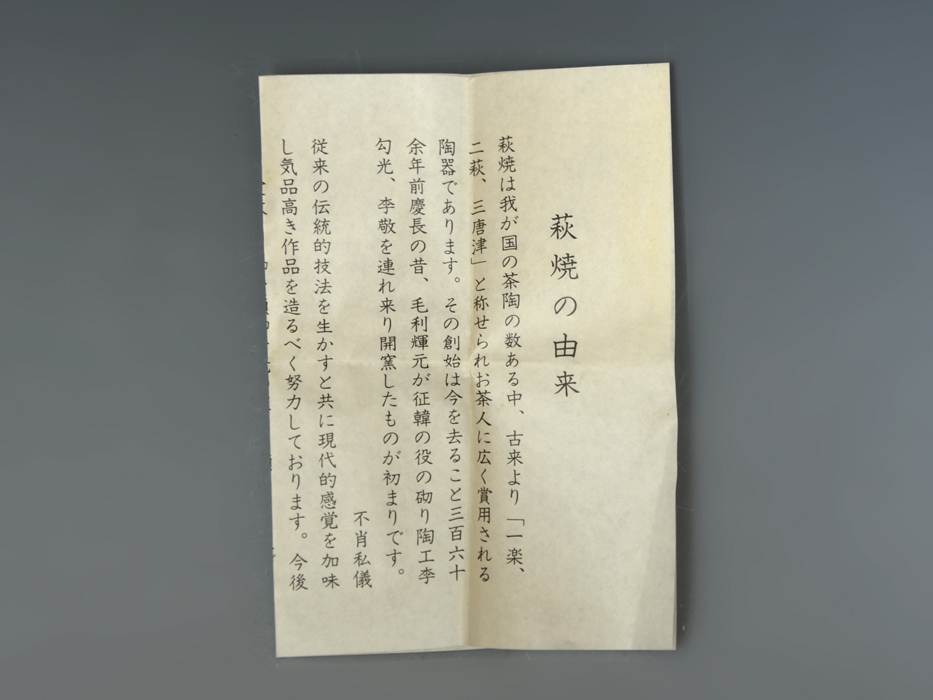 萩焼の由来
萩焼は我が国の茶陶の数ある中、古来より「一楽、
二萩、三唐津」と称せられお茶人に広く賞用される
陶器であります。その創始は今を去ること三百六十
余年前慶長の昔、毛利輝元が征韓の役の砌り陶工李
勾光、李敬を連れ来り開窯したものが初まりです。
不肖私儀
従来の伝統的技法を生かすと共に現代的感覚を加味
し気品高き作品を造るべく努力しております。今後